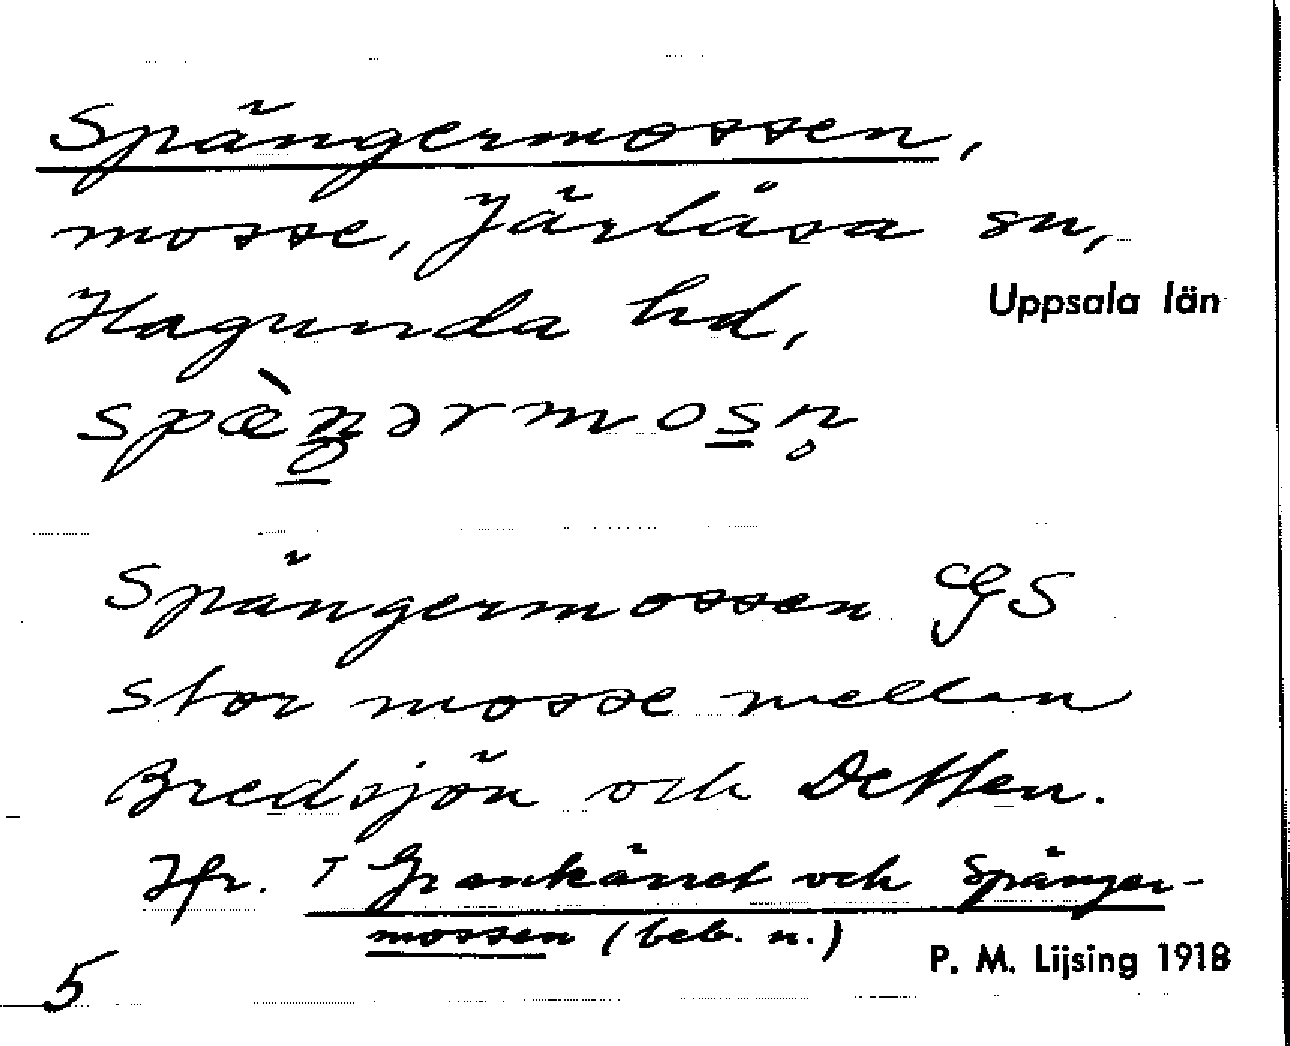 Spängermossen,
mosse, Järlåsa sn,
Hagunda hd,
Uppsala län
Spängermossen GS
stor mosse mellan
Bredsjön och Detten.
Jfr. T Grankärret och Spänger-
mossen (beb. n.)
P. M. Lijsing 1918
5